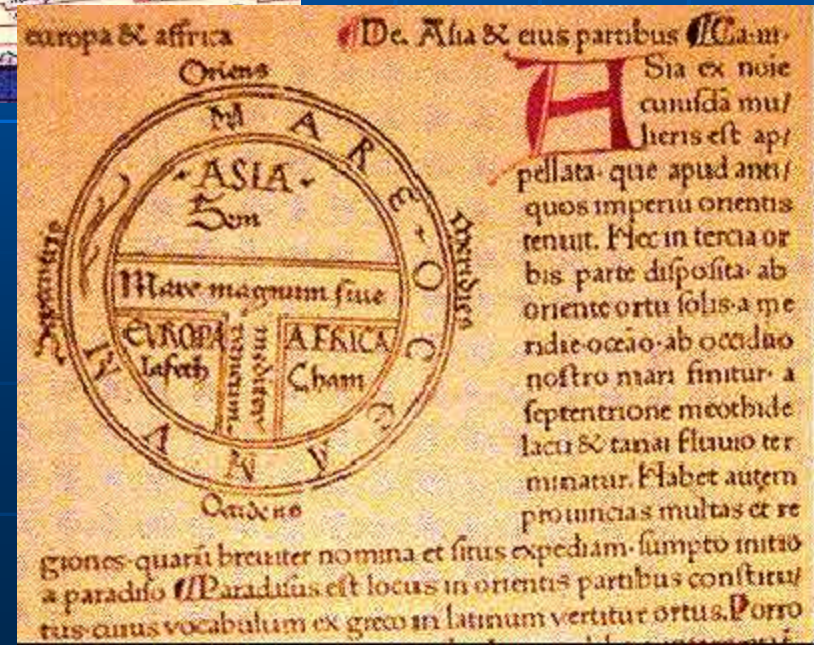 europa & affrica
De. Asia & eius partibus Ca.iii.
Oriens
MARE OCCEANUM
ASIA
Sem
Mare magnum siue
mediterraneum
EVROPA
Iafeth
AFRICA
Cham
Septentrio
Meridies
Occidens
ASia ex noīe
cuiusdā mu/
lieris est ap/
pellata. que apud anti/
quos imperiū orientis
tenuit. Hec in tercia or
bis parte disposita. ab
oriente ortu solis. a me
ridie. oceāo. ab occiduo
nostro mari finitur. a
septentrione meothide
lacu & tanai fluuio ter
minatur. Habet autem
prouincias multas et re
giones. quarū breuiter nomina et situs expediam. sumpto initio
a paradiso Paradisus est locus in orientis partibus constitu/
tus. cuius vocabulum ex greco in latinum vertitur ortus. Porro